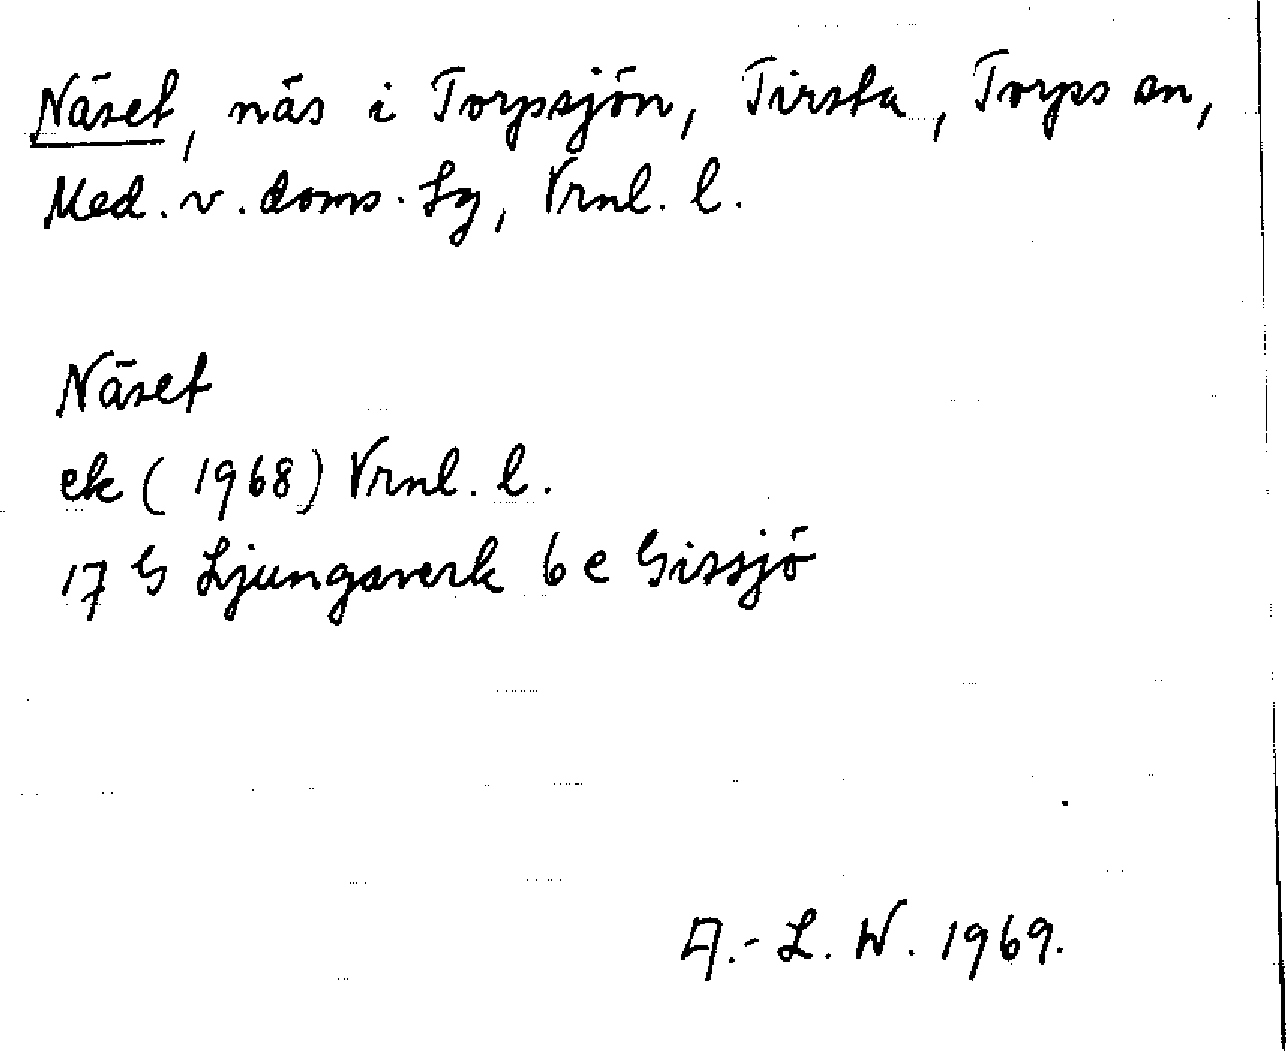 Näset, näs i Torpsjön, Tirsta, Torps sn,
Med. v. doms. lg, Vrnl. l.
Näset
ek (1968) Vrnl. l.
17 G Ljungaverk 6 e Gissjö
A.-L. W. 1969.